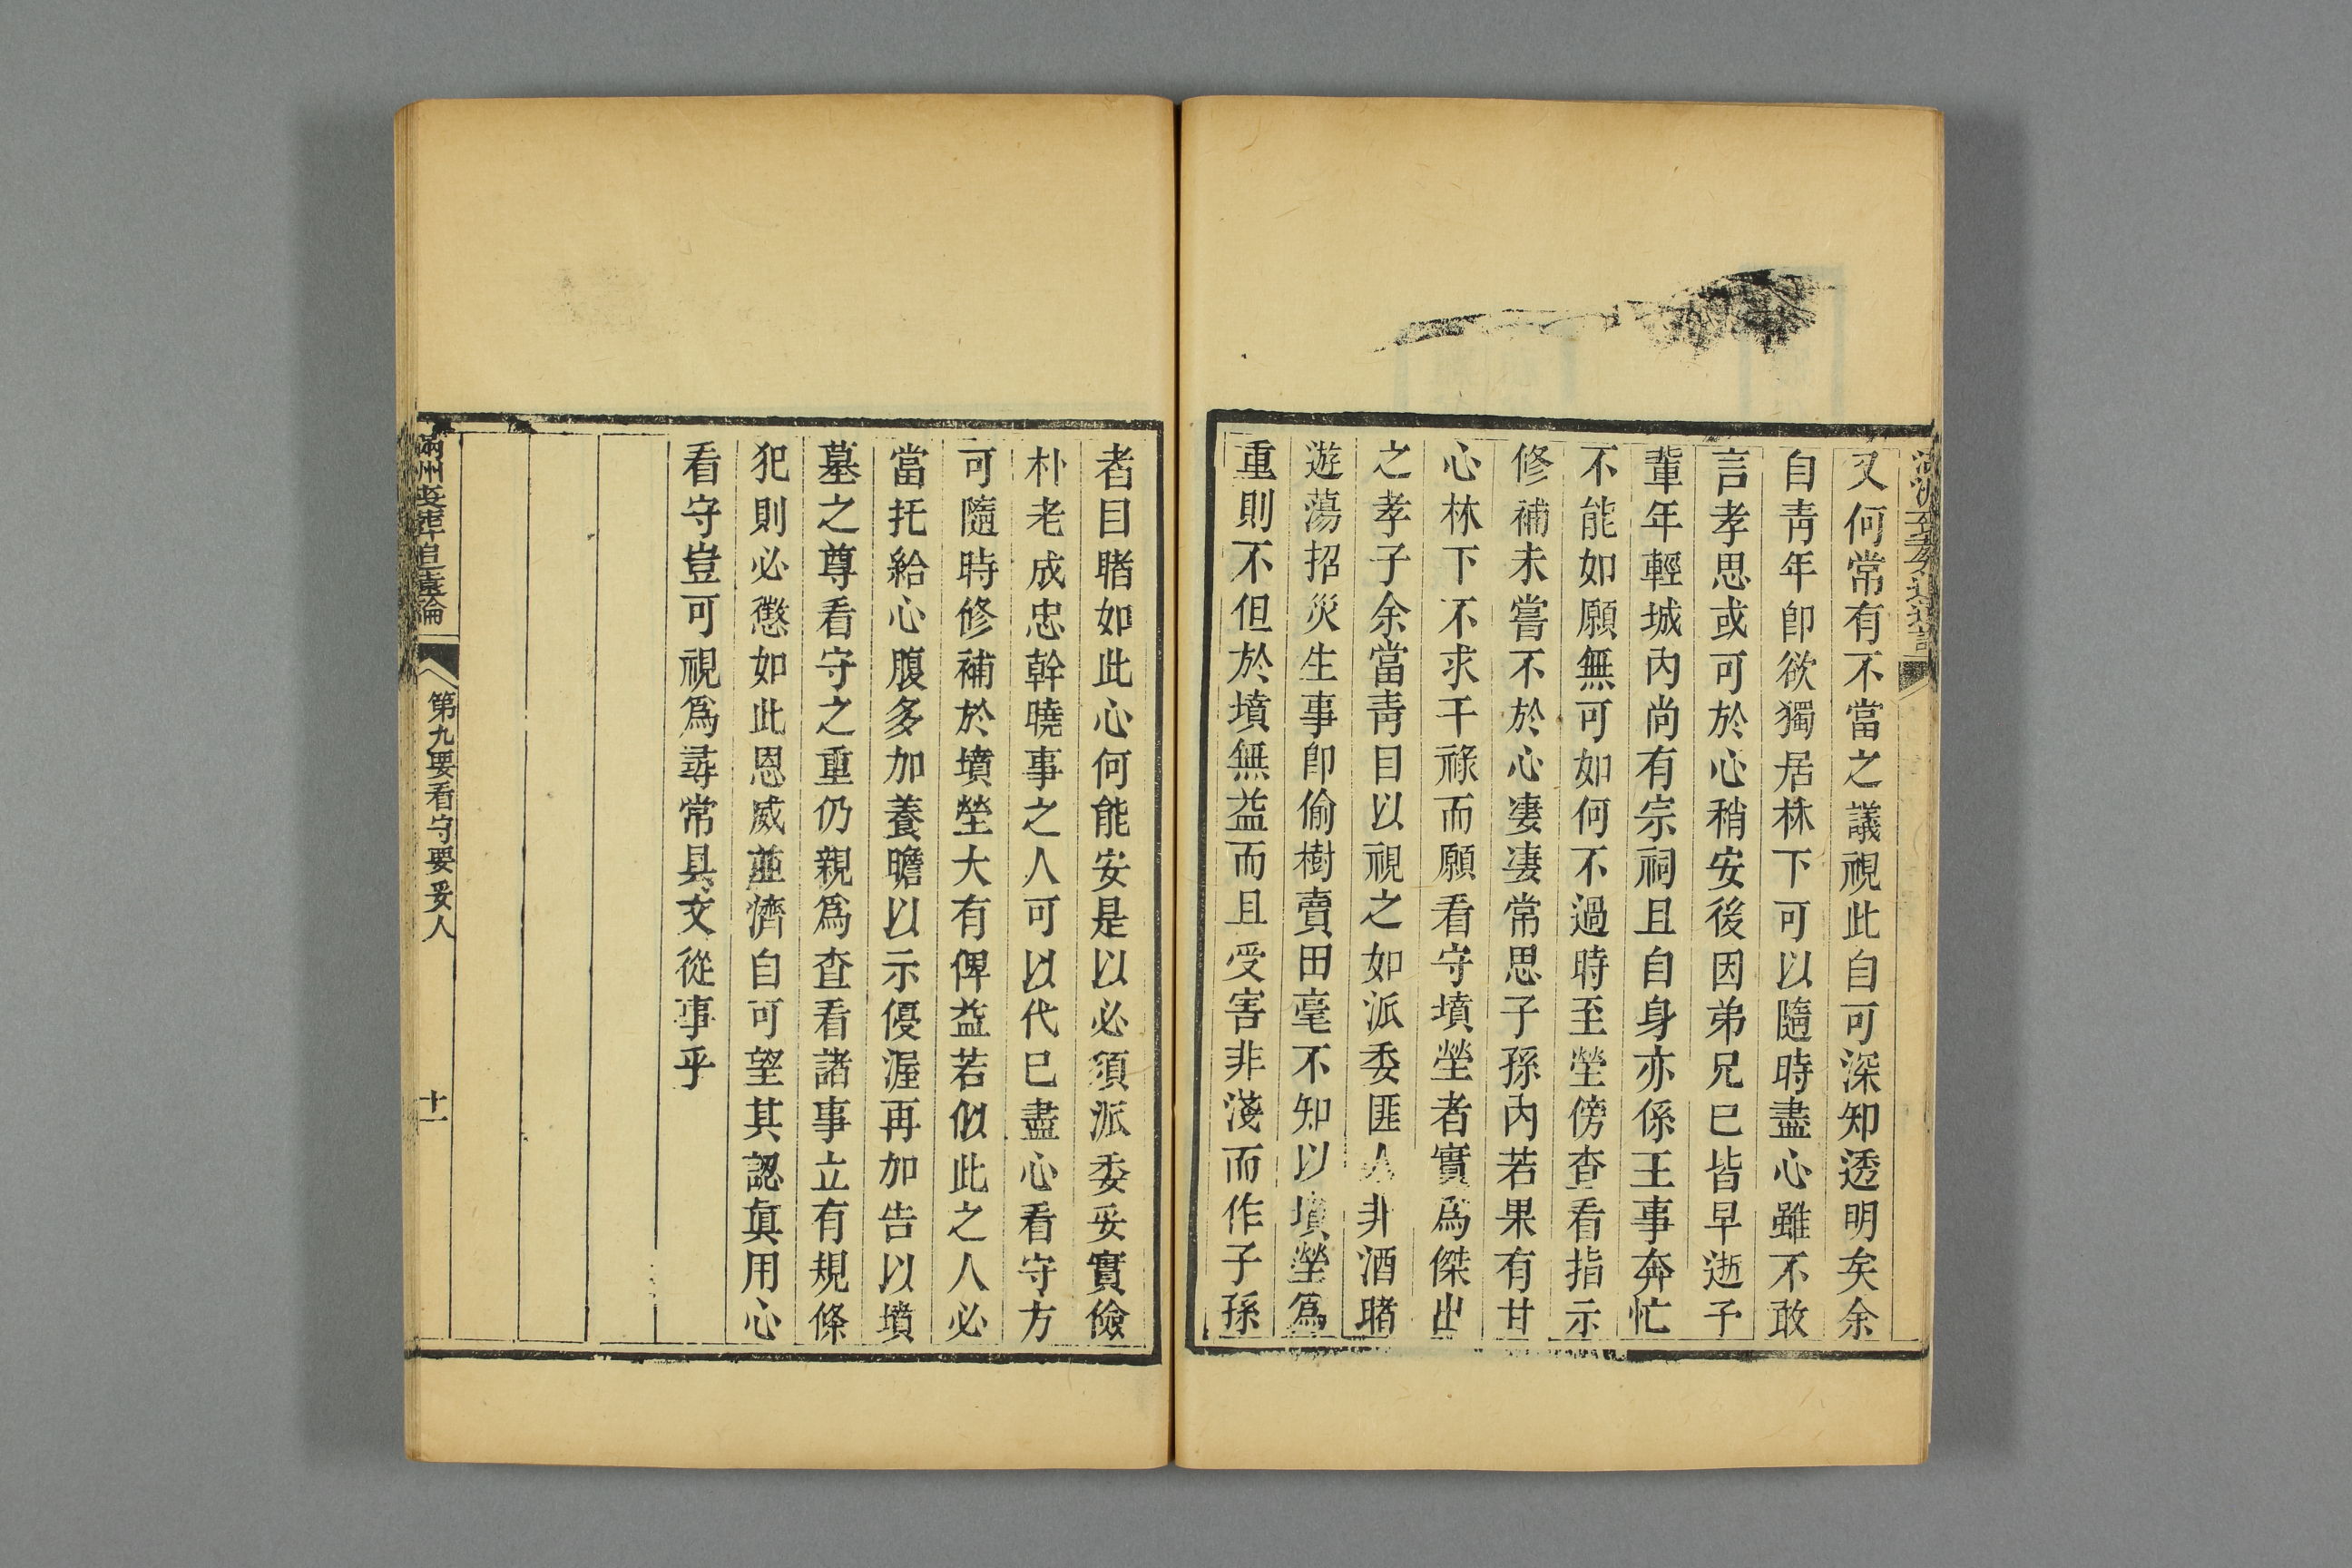 又何常有不當之議視此自可深知透明矣余
自靑年卽欲獨居林下可以隨時盡心雖不敢
言孝思或可於心稍安後因弟兄巳皆早逝予
輩年輕城內尚有宗祠且自身亦係王事奔忙
不能如願無可如何不過時至塋傍查看指示
修補未嘗不於心凄凄常思子孫內若果有甘
心林下不求干祿而願看守墳塋者實爲傑出
之孝子余當靑目以視之如派委匪人非酒賭
遊蕩招災生事卽偷樹賣田毫不知以墳塋爲
重則不但於墳無益而且受害非淺而作子孫
者目睹如此心何能安是以必須派委妥實儉
朴老成忠幹曉事之人可以代巳盡心看守方
可隨時修補於墳塋大有俾益若似此之人必
當托給心腹多加養瞻以示優渥再加告以墳
墓之尊看守之重仍親爲查看諸事立有規條
犯則必懲如此恩威並濟自可望其認眞用心
看守豈可視爲尋常具文從事乎
滿州喪葬追遠論
第九要看守要妥人
十一